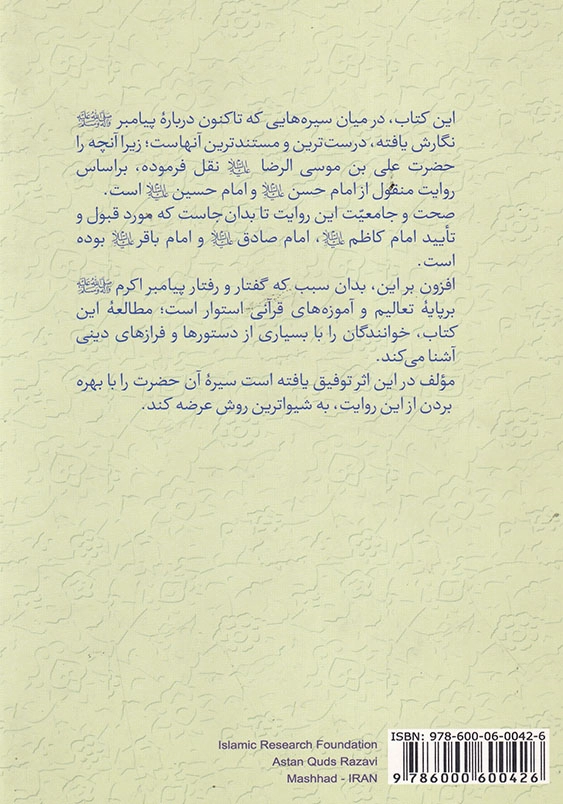 این کتاب، در میان سیره‌هایی که تاکنون دربارهٔ پیامبر ﷺ
نگارش یافته، درست‌ترین و مستندترین آنهاست؛ زیرا آنچه را
حضرت علی بن موسی الرضا علیه‌السلام نقل فرموده، براساس
روایت منقول از امام حسن علیه‌السلام و امام حسین علیه‌السلام است.
صحت و جامعیّت این روایت تا بدان جاست که مورد قبول و
تأیید امام کاظم علیه‌السلام، امام صادق علیه‌السلام و امام باقر علیه‌السلام بوده
است.
افزون بر این، بدان سبب که گفتار و رفتار پیامبر اکرم ﷺ
برپایهٔ تعالیم و آموزه‌های قرآنی استوار است؛ مطالعهٔ این
کتاب، خوانندگان را با بسیاری از دستورها و فرازهای دینی
آشنا می‌کند.
مؤلف در این اثر توفیق یافته است سیرهٔ آن حضرت را با بهره
بردن از این روایت، به شیواترین روش عرضه کند.
Islamic Research Foundation
Astan Quds Razavi
Mashhad - IRAN
ISBN: 978-600-06-0042-6
9 786000 600426